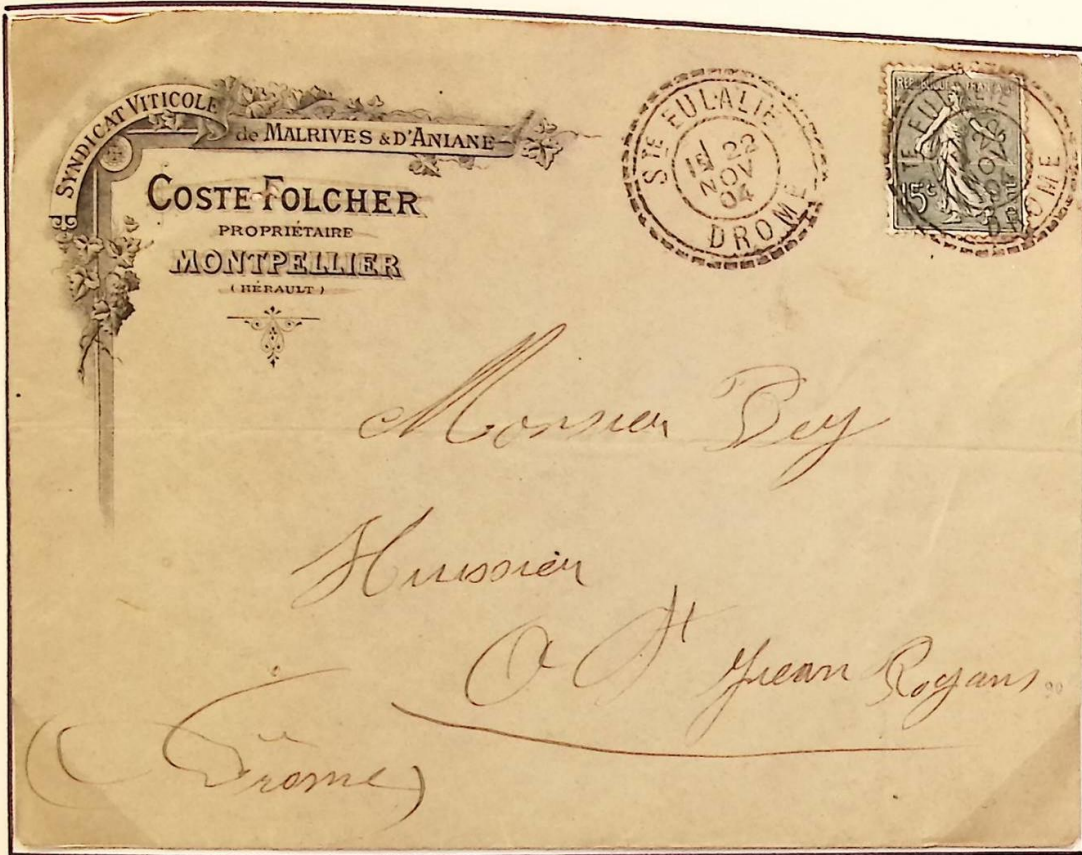 SYNDICAT VITICOLE
de MALRIVES & D'ANIANE
COSTE-FOLCHER
PROPRIÉTAIRE
MONTPELLIER
(HÉRAULT)
STE EULALIE
22
NOV
04
DROME
RÉPUBLIQUE FRANÇAISE
15c
STE EULALIE
22
NOV
04
DROME
Monsieur Pey
Huissier
A St Jean Royans
(Drome)